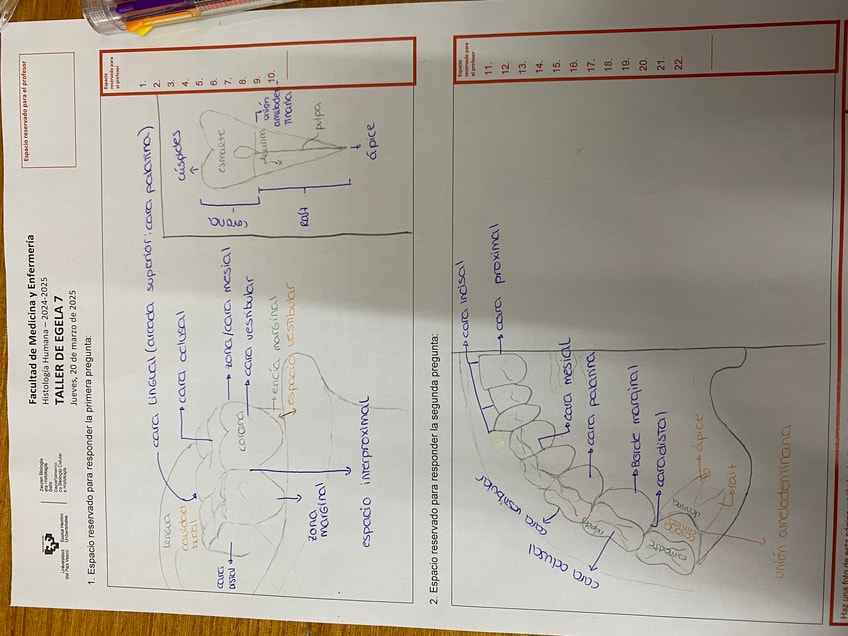 Universidad del País Vasco
Euskal Herriko Unibertsitatea
Zelulen Biologia eta Histologia Saila
Departamento de Biología Celular e Histología
Facultad de Medicina y Enfermería
Histología Humana – 2024-2025
TALLER DE EGELA 7
Jueves, 20 de marzo de 2025
Espacio reservado para el profesor
1. Espacio reservado para responder la primera pregunta:
cara lingual (arcada superior: cara palatina)
cara oclusal
zona/cara mesial
cara vestibular
encía marginal
espacio vestibular
lengua
cavidad bucal
corona
cara distal
zona marginal
espacio interproximal
cúspides
esmalte
dentina
unión
pulpa
ápice
raíz
Espacio reservado para el profesor
1.
2.
3.
4.
5.
6.
7.
8.
9.
10.
2. Espacio reservado para responder la segunda pregunta:
cara incisal
cara proximal
cara mesial
cara palatina
Borde marginal
cara distal
cara vestibular
cara oclusal
ápice
raíz
unión amelodentinaria
Espacio reservado para el profesor
11.
12.
13.
14.
15.
16.
17.
18.
19.
20.
21.
22.
Haz una foto de esta